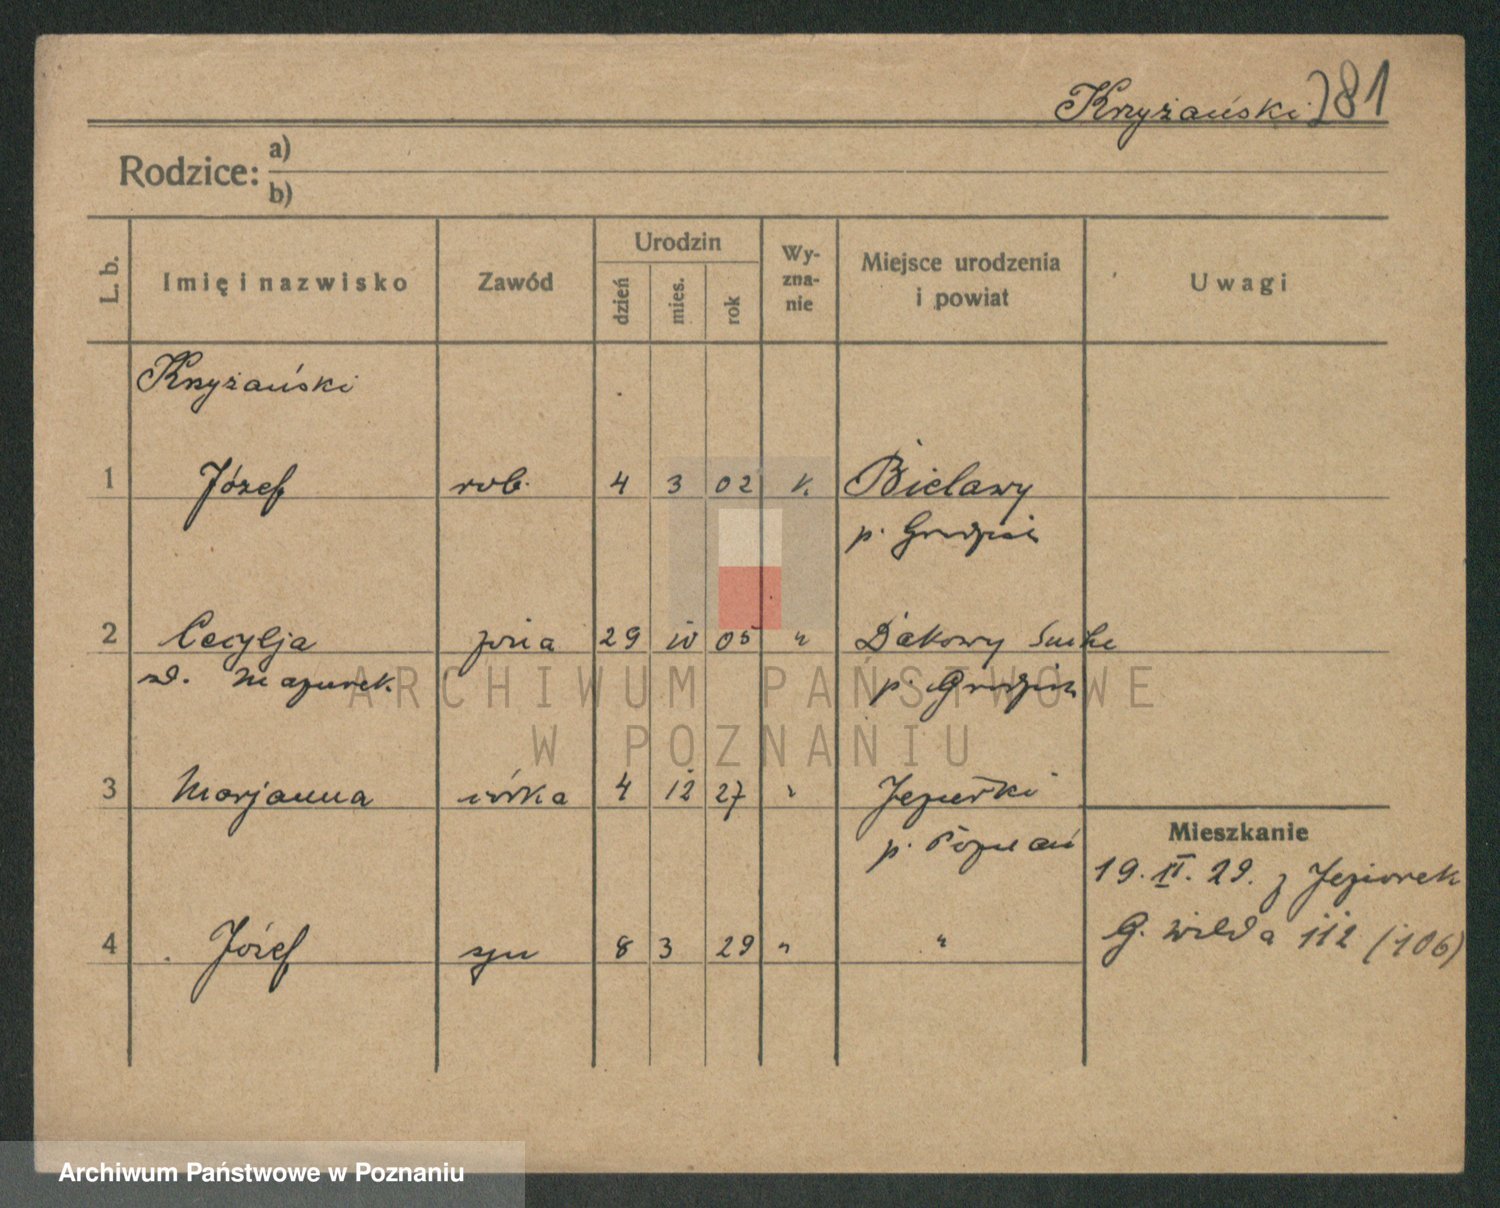 Krzyżański 781
Rodzice: a)
b)
L. b.
Imię i nazwisko
Zawód
Urodzin
dzień
mies.
rok
Wy-
zna-
nie
Miejsce urodzenia
i powiat
Uwagi
Krzyżański
1 Józef rob. 4 3 02 k. Bielawy
p. Grodzisk
2 Cecylja żona 29 10 05 " Dakowy Suche
z d. Mazurek p. Grodzisk
3 Marjanna córka 4 12 27 " Jeziorki
p. Poznań
Mieszkanie
19. II. 29. z Jeziorek
4 Józef syn 8 3 29 " "
G. Wilda 112 (106)
ARCHIWUM PAŃSTWOWE
W POZNANIU
Archiwum Państwowe w Poznaniu